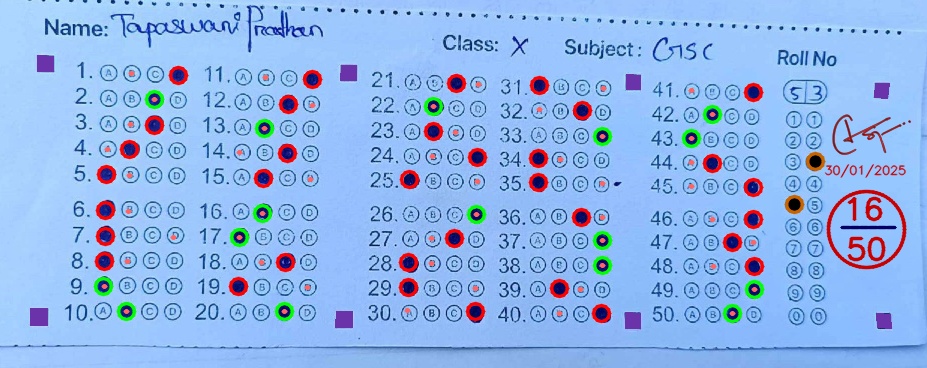 Name: Tapaswani Pradhan
Class: X Subject: GSC
Roll No
5 3
1. A B C
2. A B D
3. A B D
4. A C D
5. B C D
6. B C D
7. B C D
8. B C D
9. B C D
10. A C D
11. A B C
12. A B D
13. A C D
14. A B D
15. A C D
16. A C D
17. B C D
18. A B D
19. B C D
20. A B D
21. A B D
22. A C D
23. A C D
24. A B C
25. B C D
26. A B C
27. A B D
28. B C D
29. B C D
30. A B C
31. B C D
32. A B D
33. A B C
34. B C D
35. B C D
36. A B D
37. A B C
38. A B C
39. A C D
40. A B C
41. A B C
42. A C D
43. B C D
44. A C D
45. A B C
46. A B C
47. A B D
48. A B C
49. A B C
50. A B D
1 1
2 2
3
4 4
5
6 6
7 7
8 8
9 9
0 0
30/01/2025
16
50